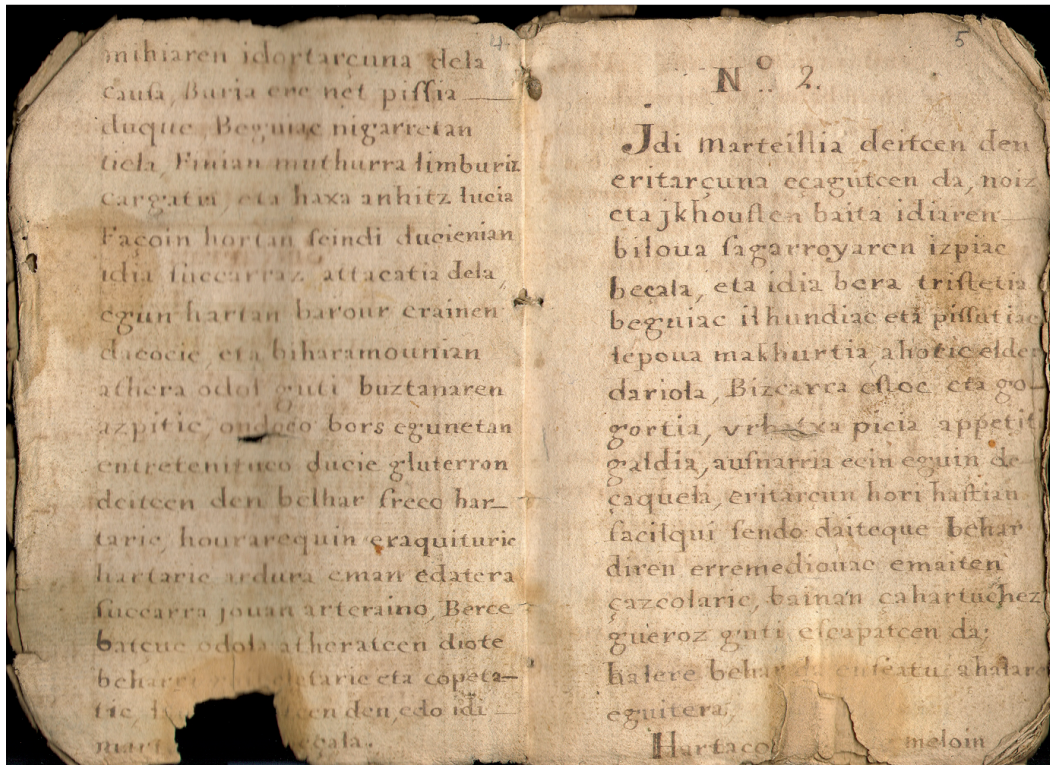 4
mihiaren idortarçuna dela
causa, Buria ere net pissia
duque, Beguiac nigarretan
tiela, muthurra limburiz
cargatu, eta haxa anhitz lucia
Façoin hortan seindi ducienian
idia succarraz attacatia dela,
egun hartan barour erainen
dacocie, eta biharamounian
athera odol guti buztanaren
azpitic, ondoco bors egunetan
entretenituco ducie gluterron
deitcen den belhar fresco har-
taric, hourarequin eraquituric
hartaric ardura eman edatera
succarra jouan arteraino, Berce
batcuc odola atheratcen diote
eta copeta-
tic, den, edo idi
5
No. 2.
Jdi Marteillia deitcen den
eritarçuna eçagutcen da, noiz
eta jkhousten baita idiaren
biloua sagarroyaren izpiac
beçala, eta idia bera tristetia
beguiac ilhundiac eta pissutiac
lepoua makhurtia ahotic elder
dariola, Bizcarra estoc eta go-
gortia, vrhatxa picia appetit
galdia, ausnarria ecin eguin de-
çaquela, eritarcun hori hastian
facilqui sendo daiteque behar
diren erremediouac emaiten
çazcolaric, bainan çahartuchez
gueroz guti escapatcen da;
halere behar da enseatu ahalare
eguitera,
meloin